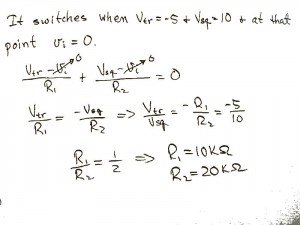 It switches when Vtr = -5 & Vsq = 10 & at that
point vi = 0.
(Vtr - vi→0)/R1 + (Vsq - vi→0)/R2 = 0
Vtr/R1 = -Vsq/R2 => Vtr/Vsq = -R1/R2 = -5/10
R1/R2 = 1/2 => R1 = 10KΩ
R2 = 20KΩ